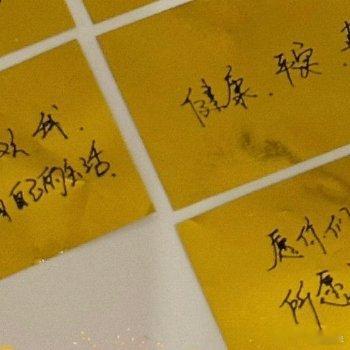 欢我.
自己的生活.
健康.平安
愿你们
所愿